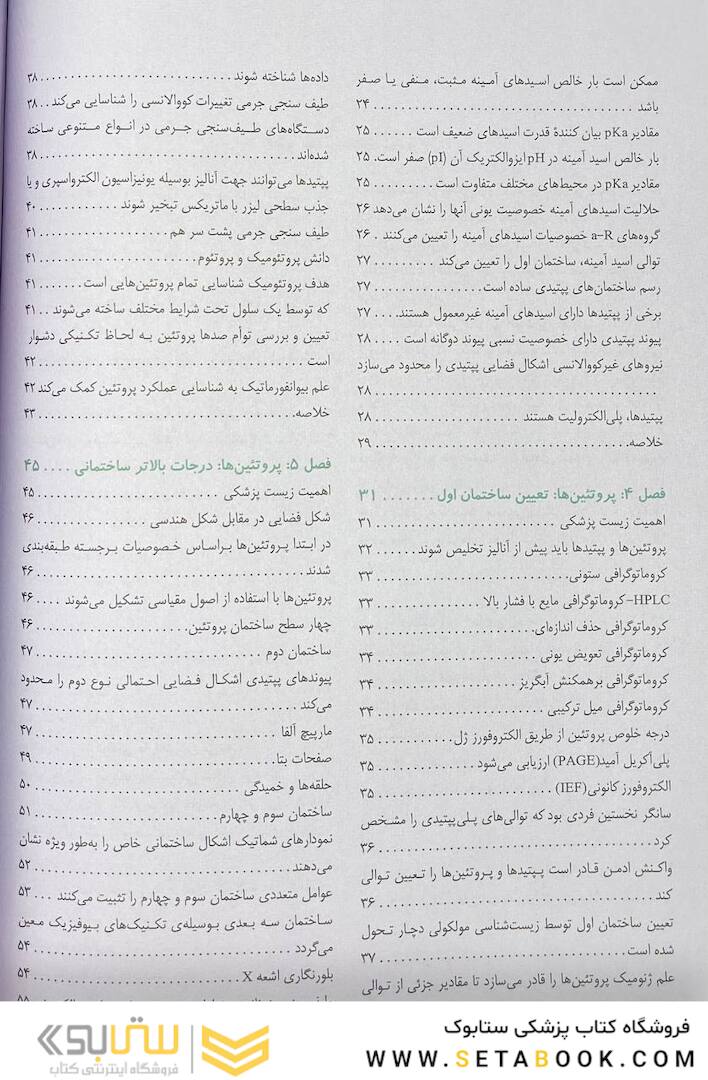 ممکن است بار خالص اسیدهای آمینه مثبت، منفی یا صفر
باشد ........ ۲۴
مقادیر pKa بیان کنندهٔ قدرت اسیدهای ضعیف است ...... ۲۵
بار خالص اسید آمینه در pH ایزوالکتریک آن (pI) صفر است. ۲۵
مقادیر pKa در محیط‌های مختلف متفاوت است ......... ۲۵
حلالیت اسیدهای آمینه خصوصیت یونی آنها را نشان می‌دهد ۲۶
گروه‌های a-R خصوصیات اسیدهای آمینه را تعیین می‌کنند . ۲۶
توالی اسید آمینه، ساختمان اول را تعیین می‌کند ......... ۲۷
رسم ساختمان‌های پپتیدی ساده است ............... ۲۷
برخی از پپتیدها دارای اسیدهای آمینه غیرمعمول هستند.... ۲۷
پیوند پپتیدی دارای خصوصیت نسبی پیوند دوگانه است .... ۲۸
نیروهای غیرکووالانسی اشکال فضایی پپتیدی را محدود می‌سازد
........ ۲۸
پپتیدها، پلی‌الکترولیت هستند .................. ۲۸
خلاصه........ ۲۹
فصل ۴: پروتئین‌ها: تعیین ساختمان اول ....... ۳۱
اهمیت زیست پزشکی ........ ۳۱
پروتئین‌ها و پپتیدها باید پیش از آنالیز تخلیص شوند ....... ۳۲
کروماتوگرافی ستونی........ ۳۳
HPLC-کروماتوگرافی مایع با فشار بالا ............... ۳۳
کروماتوگرافی حذف اندازه‌ای........ ۳۳
کروماتوگرافی تعویض یونی ........ ۳۴
کروماتوگرافی برهمکنش آبگریز ........ ۳۴
کروماتوگرافی میل ترکیبی ........ ۳۴
درجه خلوص پروتئین از طریق الکتروفورز ژل........... ۳۵
پلی‌آکریل آمید(PAGE) ارزیابی می‌شود ............ ۳۵
الکتروفورز کانونی(IEF) ........ ۳۵
سانگر نخستین فردی بود که توالی‌های پلی‌پپتیدی را مشخص
کرد........ ۳۶
واکنش ادمن قادر است پپتیدها و پروتئین‌ها را تعیین توالی
کند ........ ۳۶
تعیین ساختمان اول توسط زیست‌شناسی مولکولی دچار تحول
شده است........ ۳۷
علم ژنومیک پروتئین‌ها را قادر می‌سازد تا مقادیر جزئی از توالی
داده‌ها شناخته شوند ........ ۳۸
طیف سنجی جرمی تغییرات کووالانسی را شناسایی می‌کند .. ۳۸
دستگاه‌های طیف‌سنجی جرمی در انواع متنوعی ساخته
شده‌اند........ ۳۸
پپتیدها می‌توانند جهت آنالیز بوسیله یونیزاسیون الکترواسپری و یا
جذب سطحی لیزر با ماتریکس تبخیر شوند ............ ۴۰
طیف سنجی جرمی پشت سر هم ........ ۴۱
دانش پروتئومیک و پروتئوم ........ ۴۱
هدف پروتئومیک شناسایی تمام پروتئین‌هایی است........ ۴۱
که توسط یک سلول تحت شرایط مختلف ساخته می‌شوند .. ۴۱
تعیین و بررسی توأم صدها پروتئین به لحاظ تکنیکی دشوار
است ........ ۴۲
علم بیوانفورماتیک به شناسایی عملکرد پروتئین کمک می‌کند ۴۲
خلاصه........ ۴۳
فصل ۵: پروتئین‌ها: درجات بالاتر ساختمانی .... ۴۵
اهمیت زیست پزشکی ........ ۴۵
شکل فضایی در مقابل شکل هندسی ............... ۴۶
در ابتدا پروتئین‌ها براساس خصوصیات برجسته طبقه‌بندی
شدند ........ ۴۶
پروتئین‌ها با استفاده از اصول مقیاسی تشکیل می‌شوند .... ۴۶
چهار سطح ساختمان پروتئین........ ۴۶
ساختمان دوم ........ ۴۷
پیوندهای پپتیدی اشکال فضایی احتمالی نوع دوم را محدود
می‌کند ........ ۴۷
مارپیچ آلفا ........ ۴۷
صفحات بتا........ ۴۹
حلقه‌ها و خمیدگی ........ ۵۰
ساختمان سوم و چهارم........ ۵۱
نمودارهای شماتیک اشکال ساختمانی خاص را به‌طور ویژه نشان
می‌دهند ........ ۵۲
عوامل متعددی ساختمان سوم و چهارم را تثبیت می‌کنند ... ۵۳
ساختمان سه بعدی بوسیله‌ی تکنیک‌های بیوفیزیک معین
می‌گردد ........ ۵۴
بلورنگاری اشعه X ........ ۵۴
فروشگاه کتاب پزشکی ستابوک
WWW.SETABOOK.COM
ستابوک
فروشگاه اینترنتی کتاب